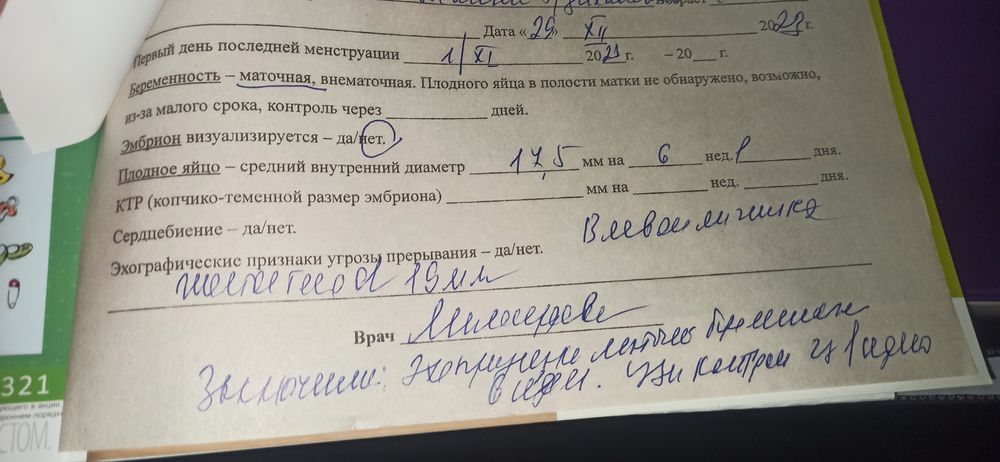 Дата «29» XII 2021 г.
Первый день последней менструации 1/XI 2021 г. – 20___ г.
Беременность – маточная, внематочная. Плодного яйца в полости матки не обнаружено, возможно,
из-за малого срока, контроль через ____________ дней.
Эмбрион визуализируется – да/нет.
Плодное яйцо – средний внутренний диаметр 17,5 мм на 6 нед. 1 дня.
КТР (копчико-теменной размер эмбриона) ____________ мм на ________ нед. ________ дня.
Сердцебиение – да/нет.
Эхографические признаки угрозы прерывания – да/нет.
В левом яичнике
желтое тело d 19 мм
Врач
Заключение: Эхопризнаки маточной беременности
6 недель. УЗИ контроль ч/з 1 неделю
321
ующего в акции
ороннем порядке
СТОМ.